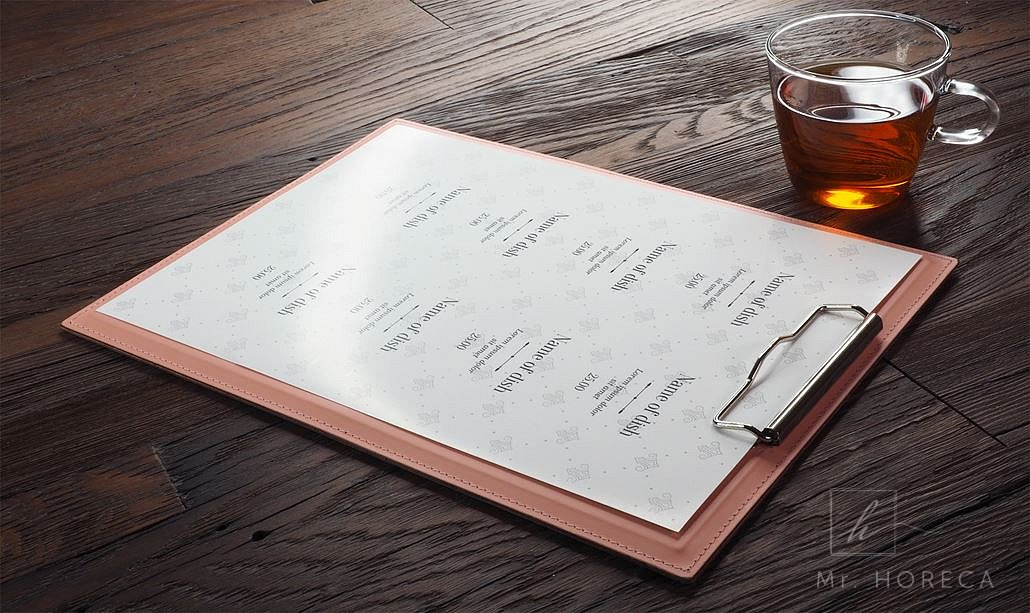 Name of dish
Lorem ipsum dolor
sit amet
25.00
Name of dish
Lorem ipsum dolor
sit amet
25.00
Name of dish
Lorem ipsum dolor
sit amet
25.00
Name of dish
Lorem ipsum dolor
sit amet
25.00
Name of dish
Lorem ipsum dolor
sit amet
25.00
Name of dish
Lorem ipsum dolor
sit amet
25.00
Name of dish
Lorem ipsum dolor
sit amet
25.00
Name of dish
Lorem ipsum dolor
sit amet
25.00
h
Mr. HORECA